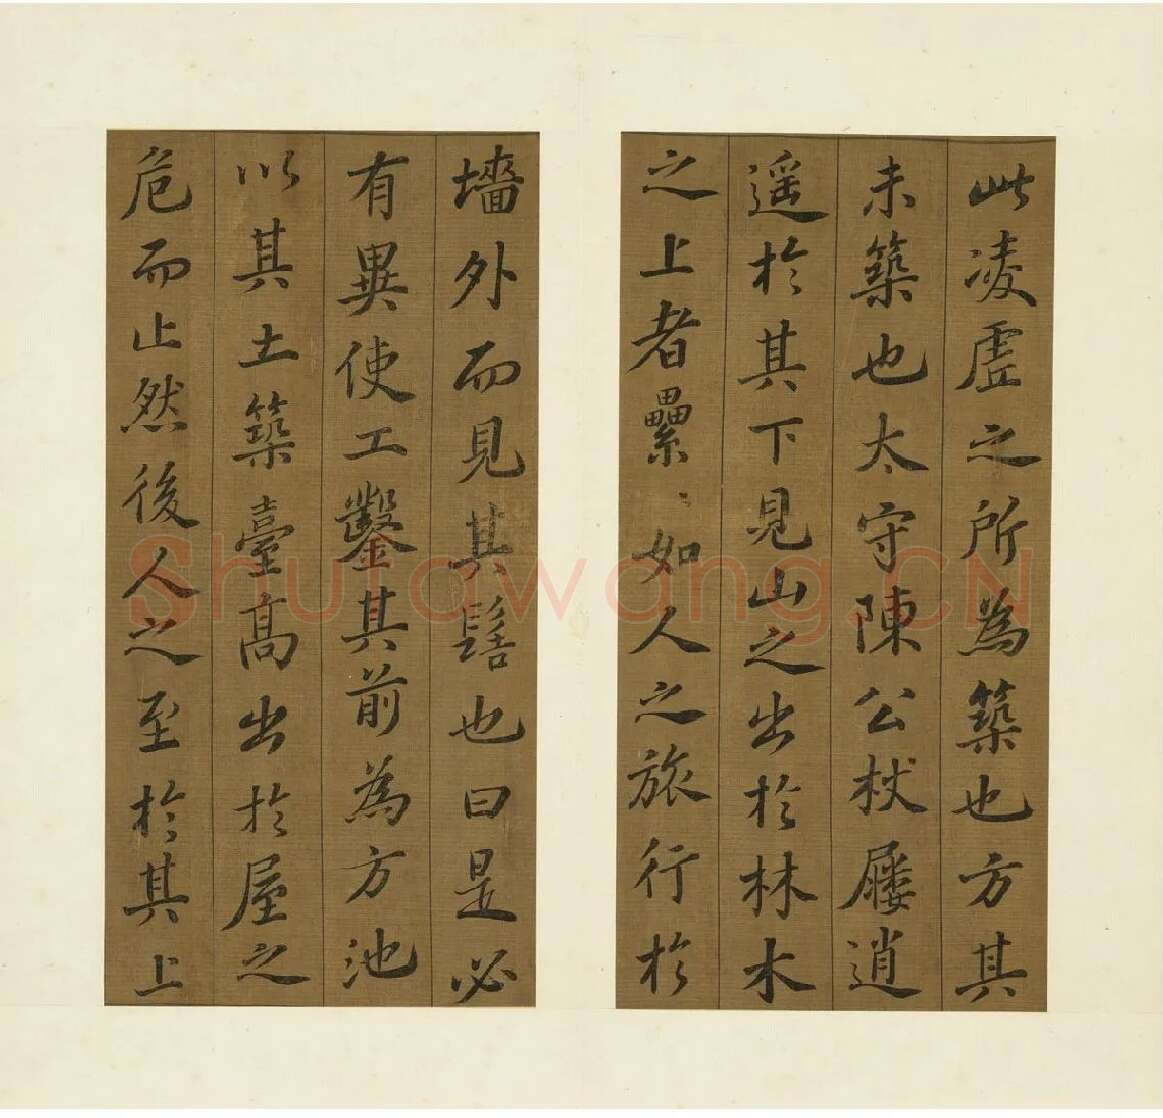 此凌虛之所為築也方其
未築也太守陳公杖屨逍
遥於其下見山之出於林木
之上者纍〻如人之旅行於
墻外而見其髻也曰是必
有異使工鑿其前為方池
以其土築臺高出於屋之
危而止然後人之至於其上
Shufawang.CN